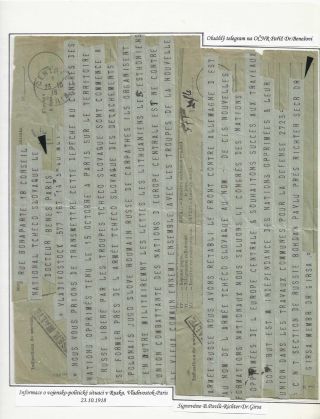 telegram na OČNR-Paříž-Dr.Benešovi
RUE BONAPARTE 18 CONSEIL
NATIONAL TCHECO SLOVAQUE LE
DOCTEUR BENES PARIS
VLADIVOSTOCK 577
NOUS VOUS PRIONS DE TRANSMETTRE CETTE DEPECHE AU CONGRES DES
NATIONS OPPRIMEES TENU LE 15 OCTOBRE A PARIS SUR LE TERRITOIRE
RUSSE LIBERE PAR LES TROUPES TCHECO SLOVAQUES ONT COMMENCE A
SE FORMER PRES DE L ARMEE TCHECO SLOVAQUE DES DETACHEMENTS
POLONAIS JUGO SLOVE ROUMAIN RUSSE DE CARPATHES ILS ORGANISENT
EN OUTRE MILITAIREMENT LES LETTIS LES LITHUANIENS LES ESTONIENS
UNION COMBATTANTE DES NATIONS D EUROPE CENTRALE EST NEE CONTRE
VIEUX COMMUN ENNEMI ENSEMBLE AVEC LES TROUPES DE LA NOUVELLE
ARMEE RUSSE NOUS AVONS RETABLI LE FRONT CONTRE ALLEMAGNE D EST
AU NOM DE L ARMEE TCHECO SLOVAQUE ET AU NOM DE CES NOUVELLES
NATIONALES NOUS SALUONS LE CONGRES DES NATIONS
OPPRIMEES DE L EUROPE CENTRALE SOUHAITONS SUCCES AUX TRAVAUX
DONT BUT EST INDEPENDANCE DES NATIONS OPPRIMEES ET LEUR
UNION DANS LES TRAVAUX COMMUNS POUR LA DEFENSE 2723-
C N SECTION DE RUSSIE BOHDAN PAVLU PRES RICHTER SECR DR
GIRSA MEMBRE
Informace o vojensko-politické situaci v Rusku, Vladivostok-Paris
23.10.1918
Signováno B.Pavlů-Richter-Dr.Girsa